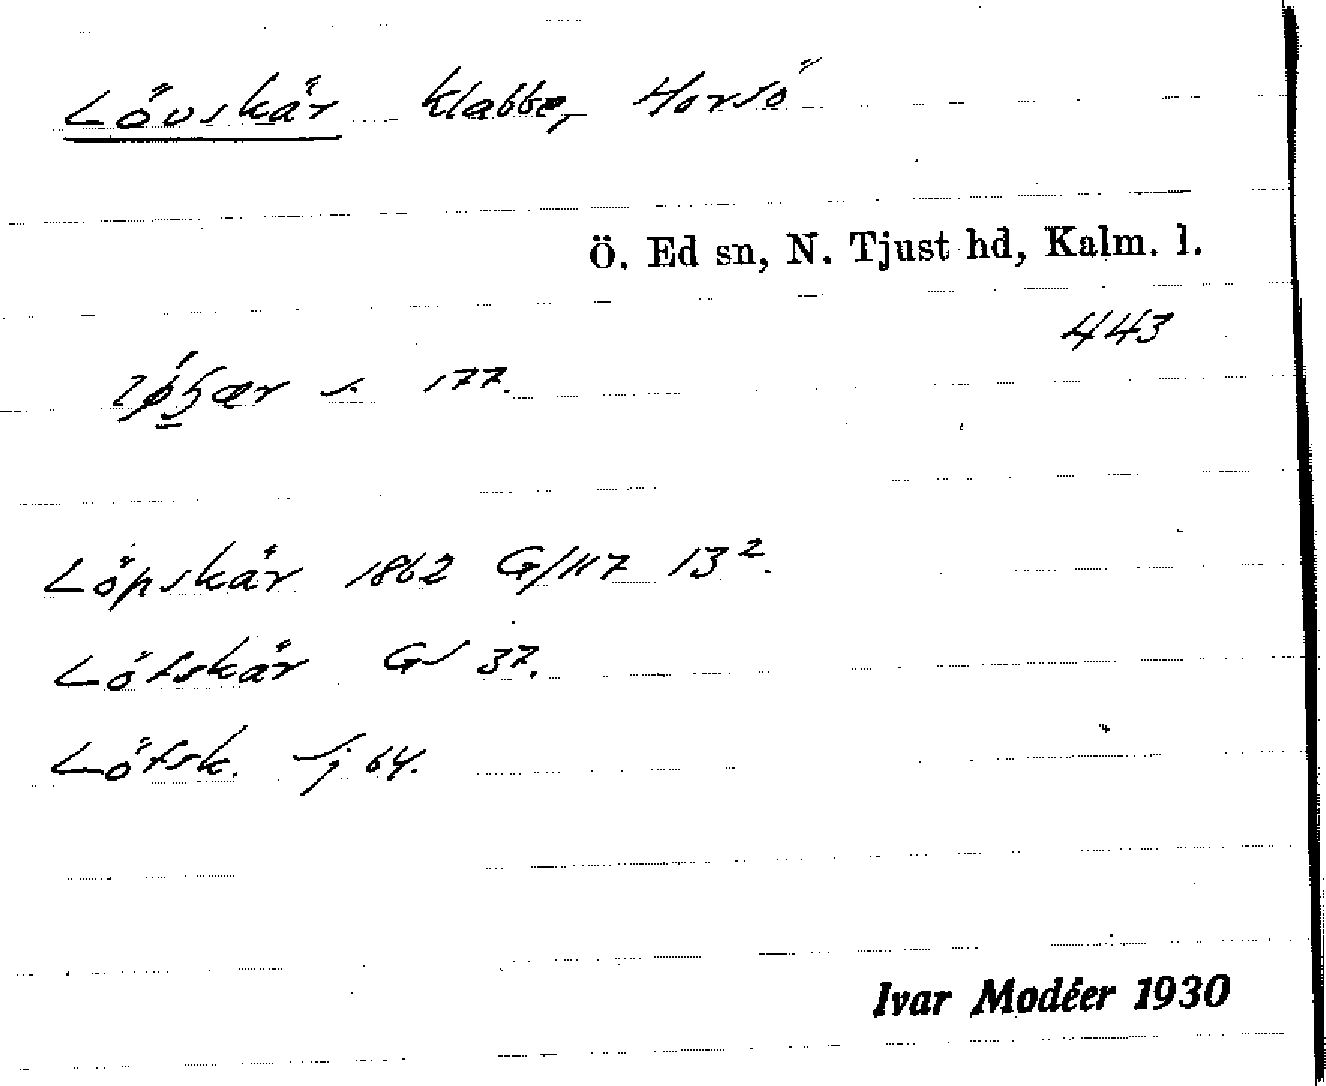 Lövskär klabbe, Horsö
Ö. Ed sn, N. Tjust hd, Kalm. l.
443
s. 177.
Löpskär 1862 G/117 13².
Löfskär GS 37.
Löfsk. Sj 64.
Ivar Modéer 1930